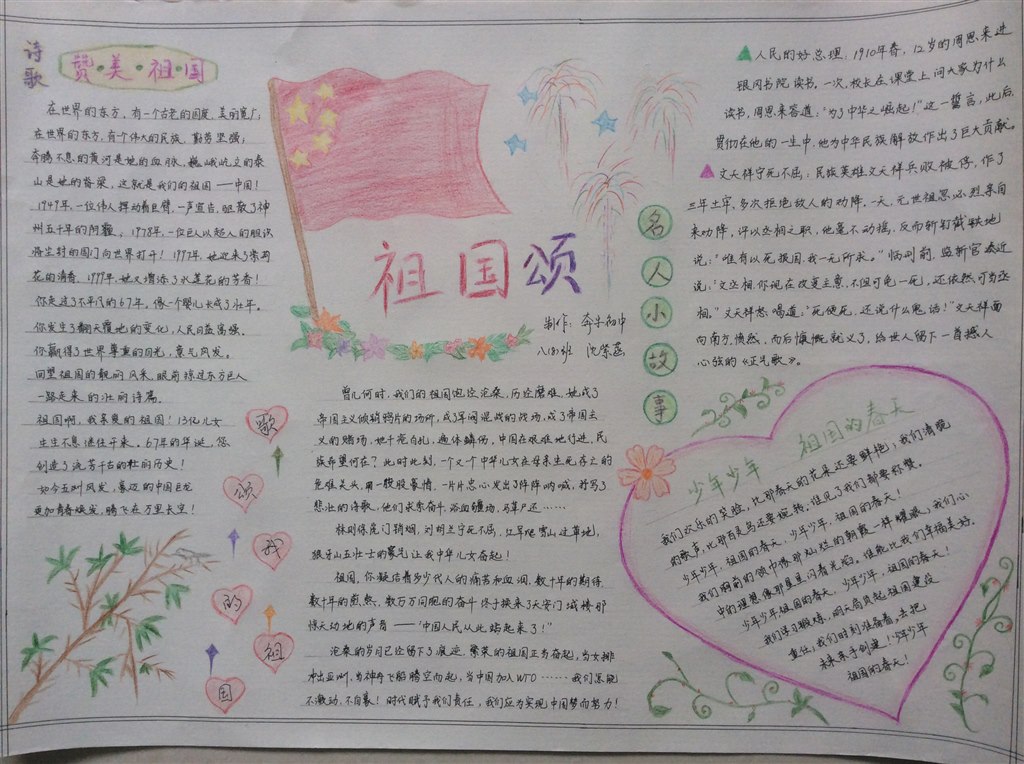 诗歌
赞·美·祖·国
在世界的东方,有一个古老的国度,美丽宽广;
在世界的东方,有个伟大的民族,勤劳坚强;
奔腾不息的黄河是她的血脉,巍峨屹立的泰
山是她的脊梁,这就是我们的祖国——中国!
1949年,一位伟人挥动着巨臂,一声宣告,驱散了神
州五千年的阴霾、1978年,一位巨人以超人的胆识
将尘封的国门向世界打开!1997年,她迎来了紫荆
花的清香、1999年,她又增添了水莲花的芳香!
你走过了不平凡的67年,像一个婴儿长成了壮年。
你发生了翻天覆地的变化,人民日益富强。
你赢得了世界尊重的目光,意气风发。
回望祖国的靓丽风采,眼前掠过东方巨人
一路走来的壮丽诗篇。
祖国啊,我亲爱的祖国!13亿儿女
生生不息递往千来。67年的年诞,您
创造了流芳千古的壮丽历史!
如今五洲风发,豪迈的中国巨龙
更加青春焕发,腾飞在万里长空!
祖国颂
制作:奔牛初中
八(8)班
歌
颂
我
的
祖
国
曾几何时,我们的祖国饱经沧桑,历经磨难,她成了
帝国主义倾销鸦片的场所,成了军阀混战的战场,成了帝国主
义的赌场,她千疮百孔,遍体鳞伤,中国在艰难地行进,民
族希望何在?此时此刻,一个又一个中华儿女在母亲生死存亡的
危难关头,用一股股豪情,一片片忠心发出了阵阵呐喊,抒写了
悲壮的诗歌,他们永东奋斗,浴血疆场,马革尸还……
林则徐虎门销烟,刘胡兰宁死不屈,红军爬雪山过草地,
狼牙山五壮士的豪气让我中华儿女奋起!
祖国,你凝结着多少代人的痛苦和血泪,数十年的期待,
数十年的煎熬,数万万同胞的奋斗终于换来了天安门城楼那
惊天动地的声音——"中国人民从此站起来了!"
沧桑的岁月已经留下了痕迹,繁荣的祖国正当奋起,当女排
冲出亚洲,当神舟飞船腾空而起,当中国加入WTO……我们怎能
不激动,不自豪!时代赋予我们责任,我们应为实现中国梦而努力!
名
人
小
故
事
人民的好总理:1910年春,12岁的周恩来进
银冈书院读书。一次,校长在课堂上问大家为什么
读书,周恩来答道:"为了中华之崛起!"这一誓言,此后
贯彻在他的一生中,他为中华民族解放作出了巨大贡献。
文天祥宁死不屈:民族英雄文天祥兵败被俘,作了
三年土牢、多次拒绝敌人的劝降,一天,元世祖忽必烈亲自
来劝降,许以丞相之职,他毫不动摇,反而斩钉截铁地
说:"唯有以死报国,我一无所求。"临刑前,监斩官凑近
说:"文丞相,你现在改变主意,不但可免一死,还依然可当丞
相。"文天祥怒喝道:"死便死,还说什么鬼话!"文天祥面
向南方慎然,而后慷慨就义了,给世人留下一首撼人
心弦的《正气歌》。
祖国的春天
少年少年
我们欢乐的笑脸,比那春天的花朵还要鲜艳;我们清脆
的歌声,比那百灵鸟还要婉转。谁见了我们都要称赞。
少年少年,祖国的春天,少年少年,祖国的春天!
我们胸前的领巾像那灿烂的朝霞一样耀眼;我们心
中的理想,像那星星闪着光焰。谁能比我们幸福美好。
少年少年祖国的春天。少年少年,祖国的春天!
我们学习锻炼,明天肩负起祖国建设
重任;我们时刻准备着,去把
未来亲手创建!少年少年
祖国的春天!